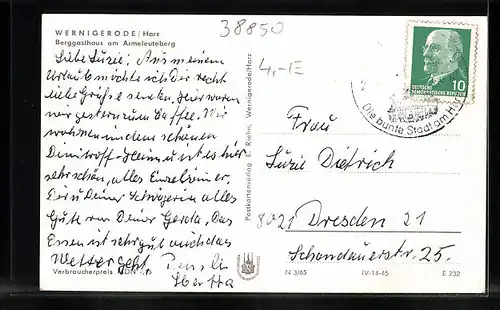 38850
WERNIGERODE/Harz
Berggasthaus am Armeleuteberg
4,-E
Liebe Suzie! Aus meinem
Urlaub möchte ich Dir recht
liebe Grüße senden, hier waren
wir gestern zum Kaffee. Wir
wohnen in dem schönen
Dimitroff-Heim u. ist es hier
sehr schön, alles Einzelzimmer.
Dir u. Deiner Schwägerin alles
Gute von Deiner Gerda. Das
Essen ist sehr gut auch das
Wetter geht
Hertha
Verbraucherpreis MDN -,15
Postkartenverlag E. Riehn, Wernigerode/Harz
DEUTSCHE
DEMOKRATISCHE REPUBLIK
10
Die bunte Stadt am Harz
Frau
Suzie Dietrich
8021 Dresden 21
Schandauerstr. 25.
N 3/65 IV-14-45 E 232